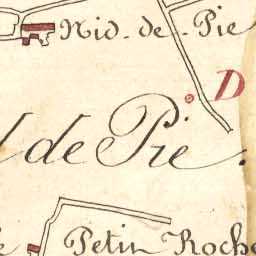 Nid-de-Pie
D
de Pie.
Petin Roche